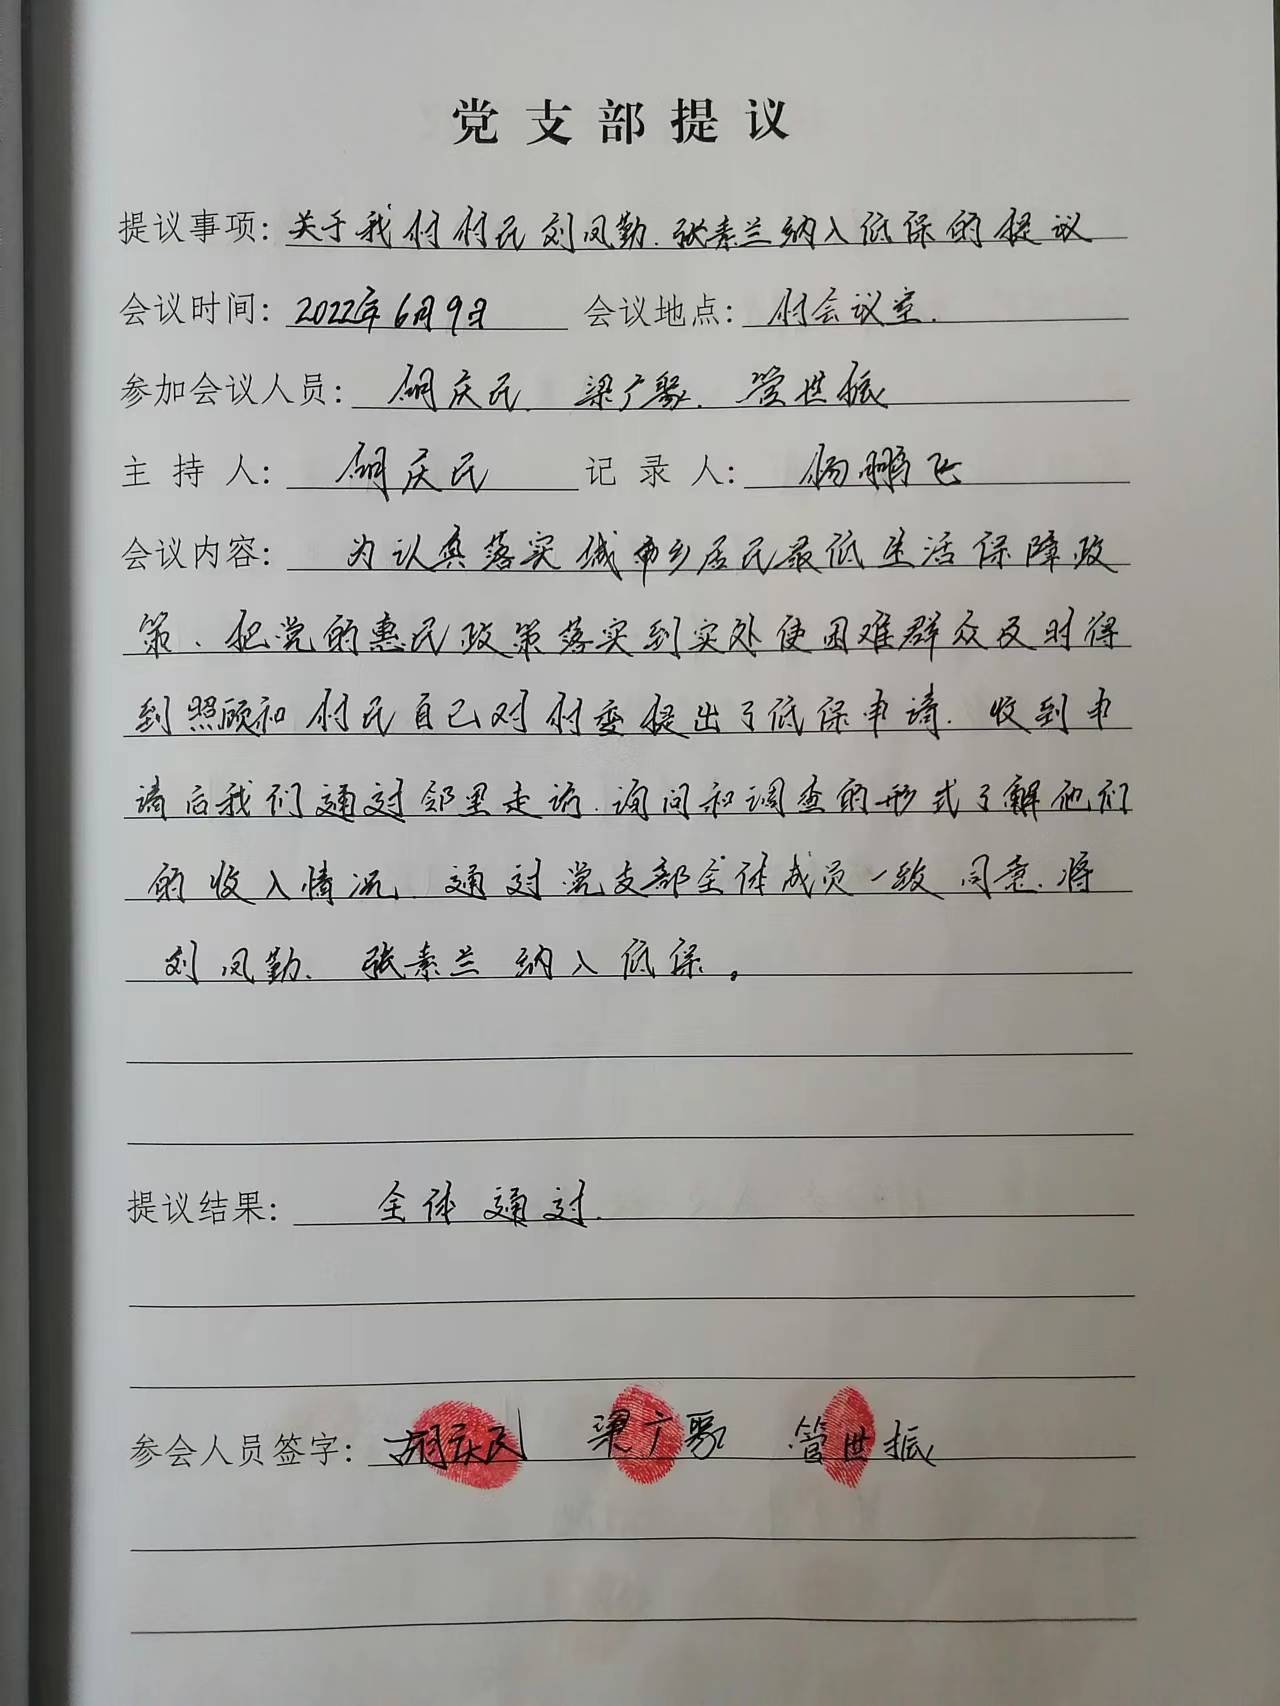 党支部提议
提议事项：关于我村村民刘凤勤、张素兰纳入低保的提议
会议时间：2022年6月9日 会议地点：村会议室.
参加会议人员：胡庆民、梁广聚、管世振
主持人：胡庆民 记录人：杨鹏飞
会议内容：为认真落实城市乡居民最低生活保障政
策、把党的惠民政策落实到实处使困难群众及时得
到照顾和村民自己对村委提出了低保申请.收到申
请后我们通过邻里走访、询问和调查的形式了解他们
的收入情况、通过党支部全体成员一致同意、将
刘凤勤、张素兰纳入低保。
提议结果：全体通过.
参会人员签字：胡庆民 梁广聚 管世振